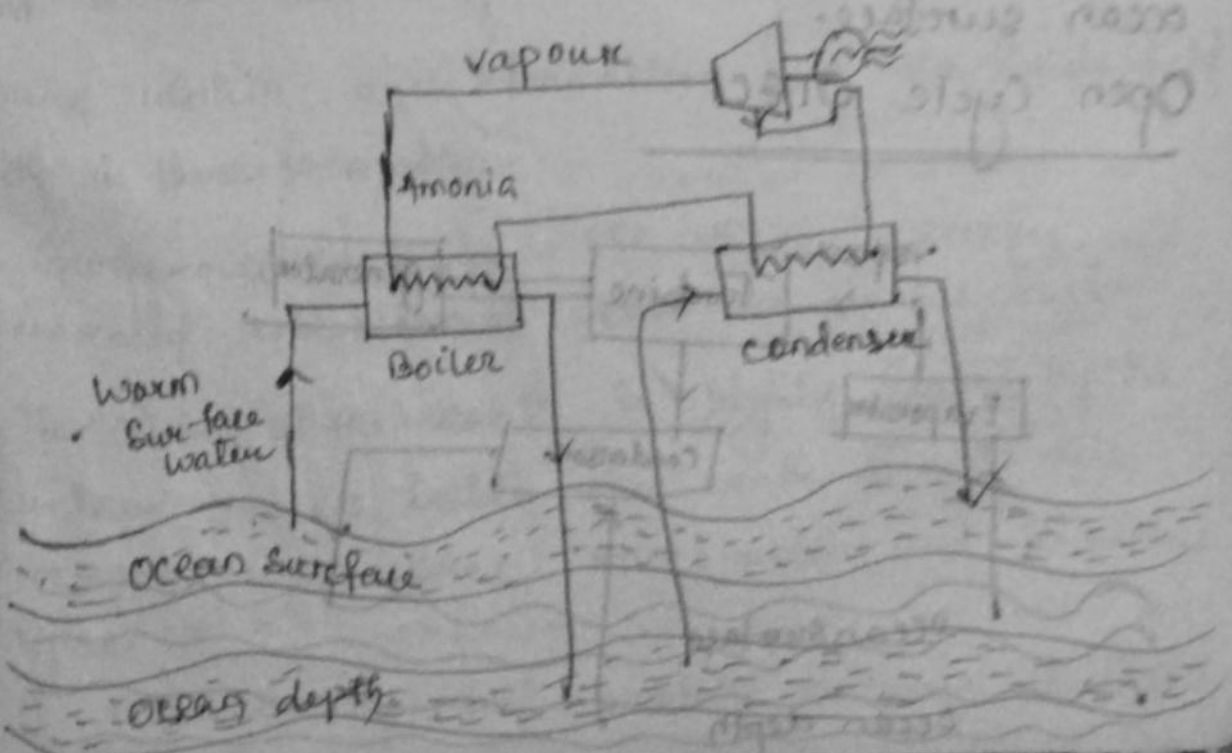 vapour
Amonia
Boiler
Condenser
Warm
Surface
water
Ocean Surface
Ocean depth